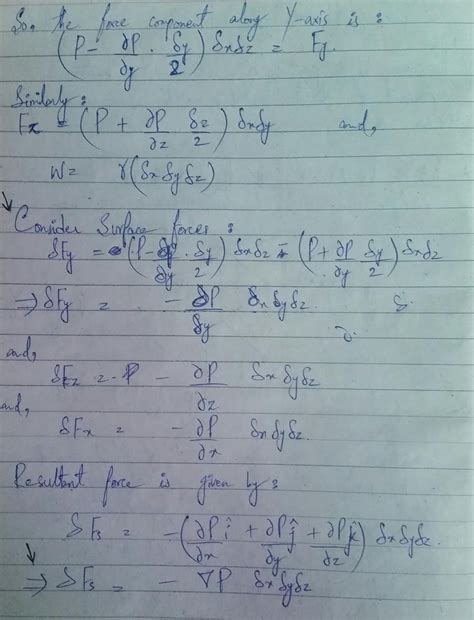 So, the force component along Y-axis is :
(P - ∂P/∂y · δy/2) δxδz = Fy.
Similarly :
Fz = (P + ∂P/∂z δz/2) δxδy and,
W = γ(δxδyδz)
Consider Surface forces :
δFy = (P - ∂P/∂y · δy/2) δxδz - (P + ∂P/∂y δy/2) δxδz
⇒ δFy = - ∂P/δy δxδyδz.
and,
δFz = - ∂P/∂z δxδyδz
and,
δFx = - ∂P/∂x δxδyδz.
Resultant force is given by :
δFs = -(∂P/∂x î + ∂P/∂y ĵ + ∂P/∂z k̂) δxδyδz.
⇒ δFs = - ∇P δxδyδz